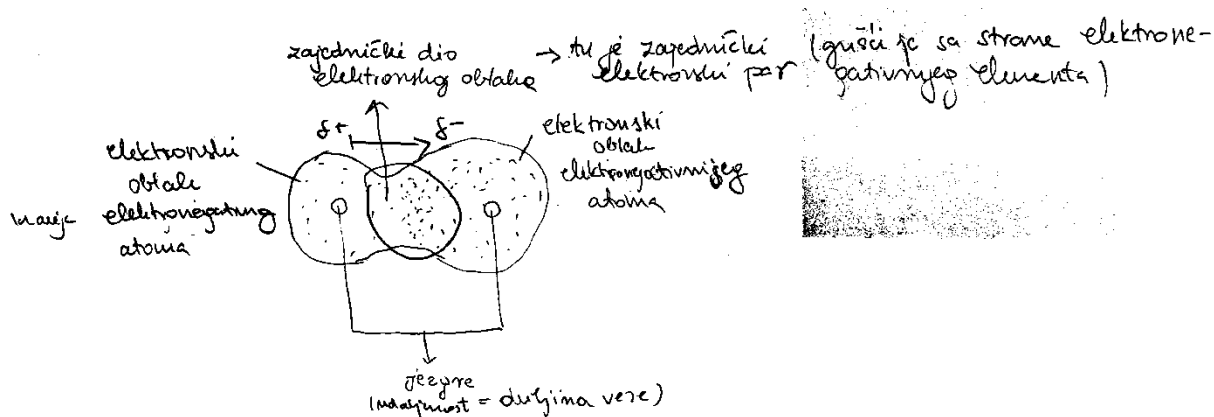 zajednički dio
elektronskog oblaka
→ tu je zajednički
elektronski par
(gušći je sa strane elektrone-
gativnijeg elementa)
δ+ δ-
elektronski
oblak
manje elektronegativnog
atoma
elektronski
oblak
elektronegativnijeg
atoma
jezgre
(udaljenost = duljina veze)